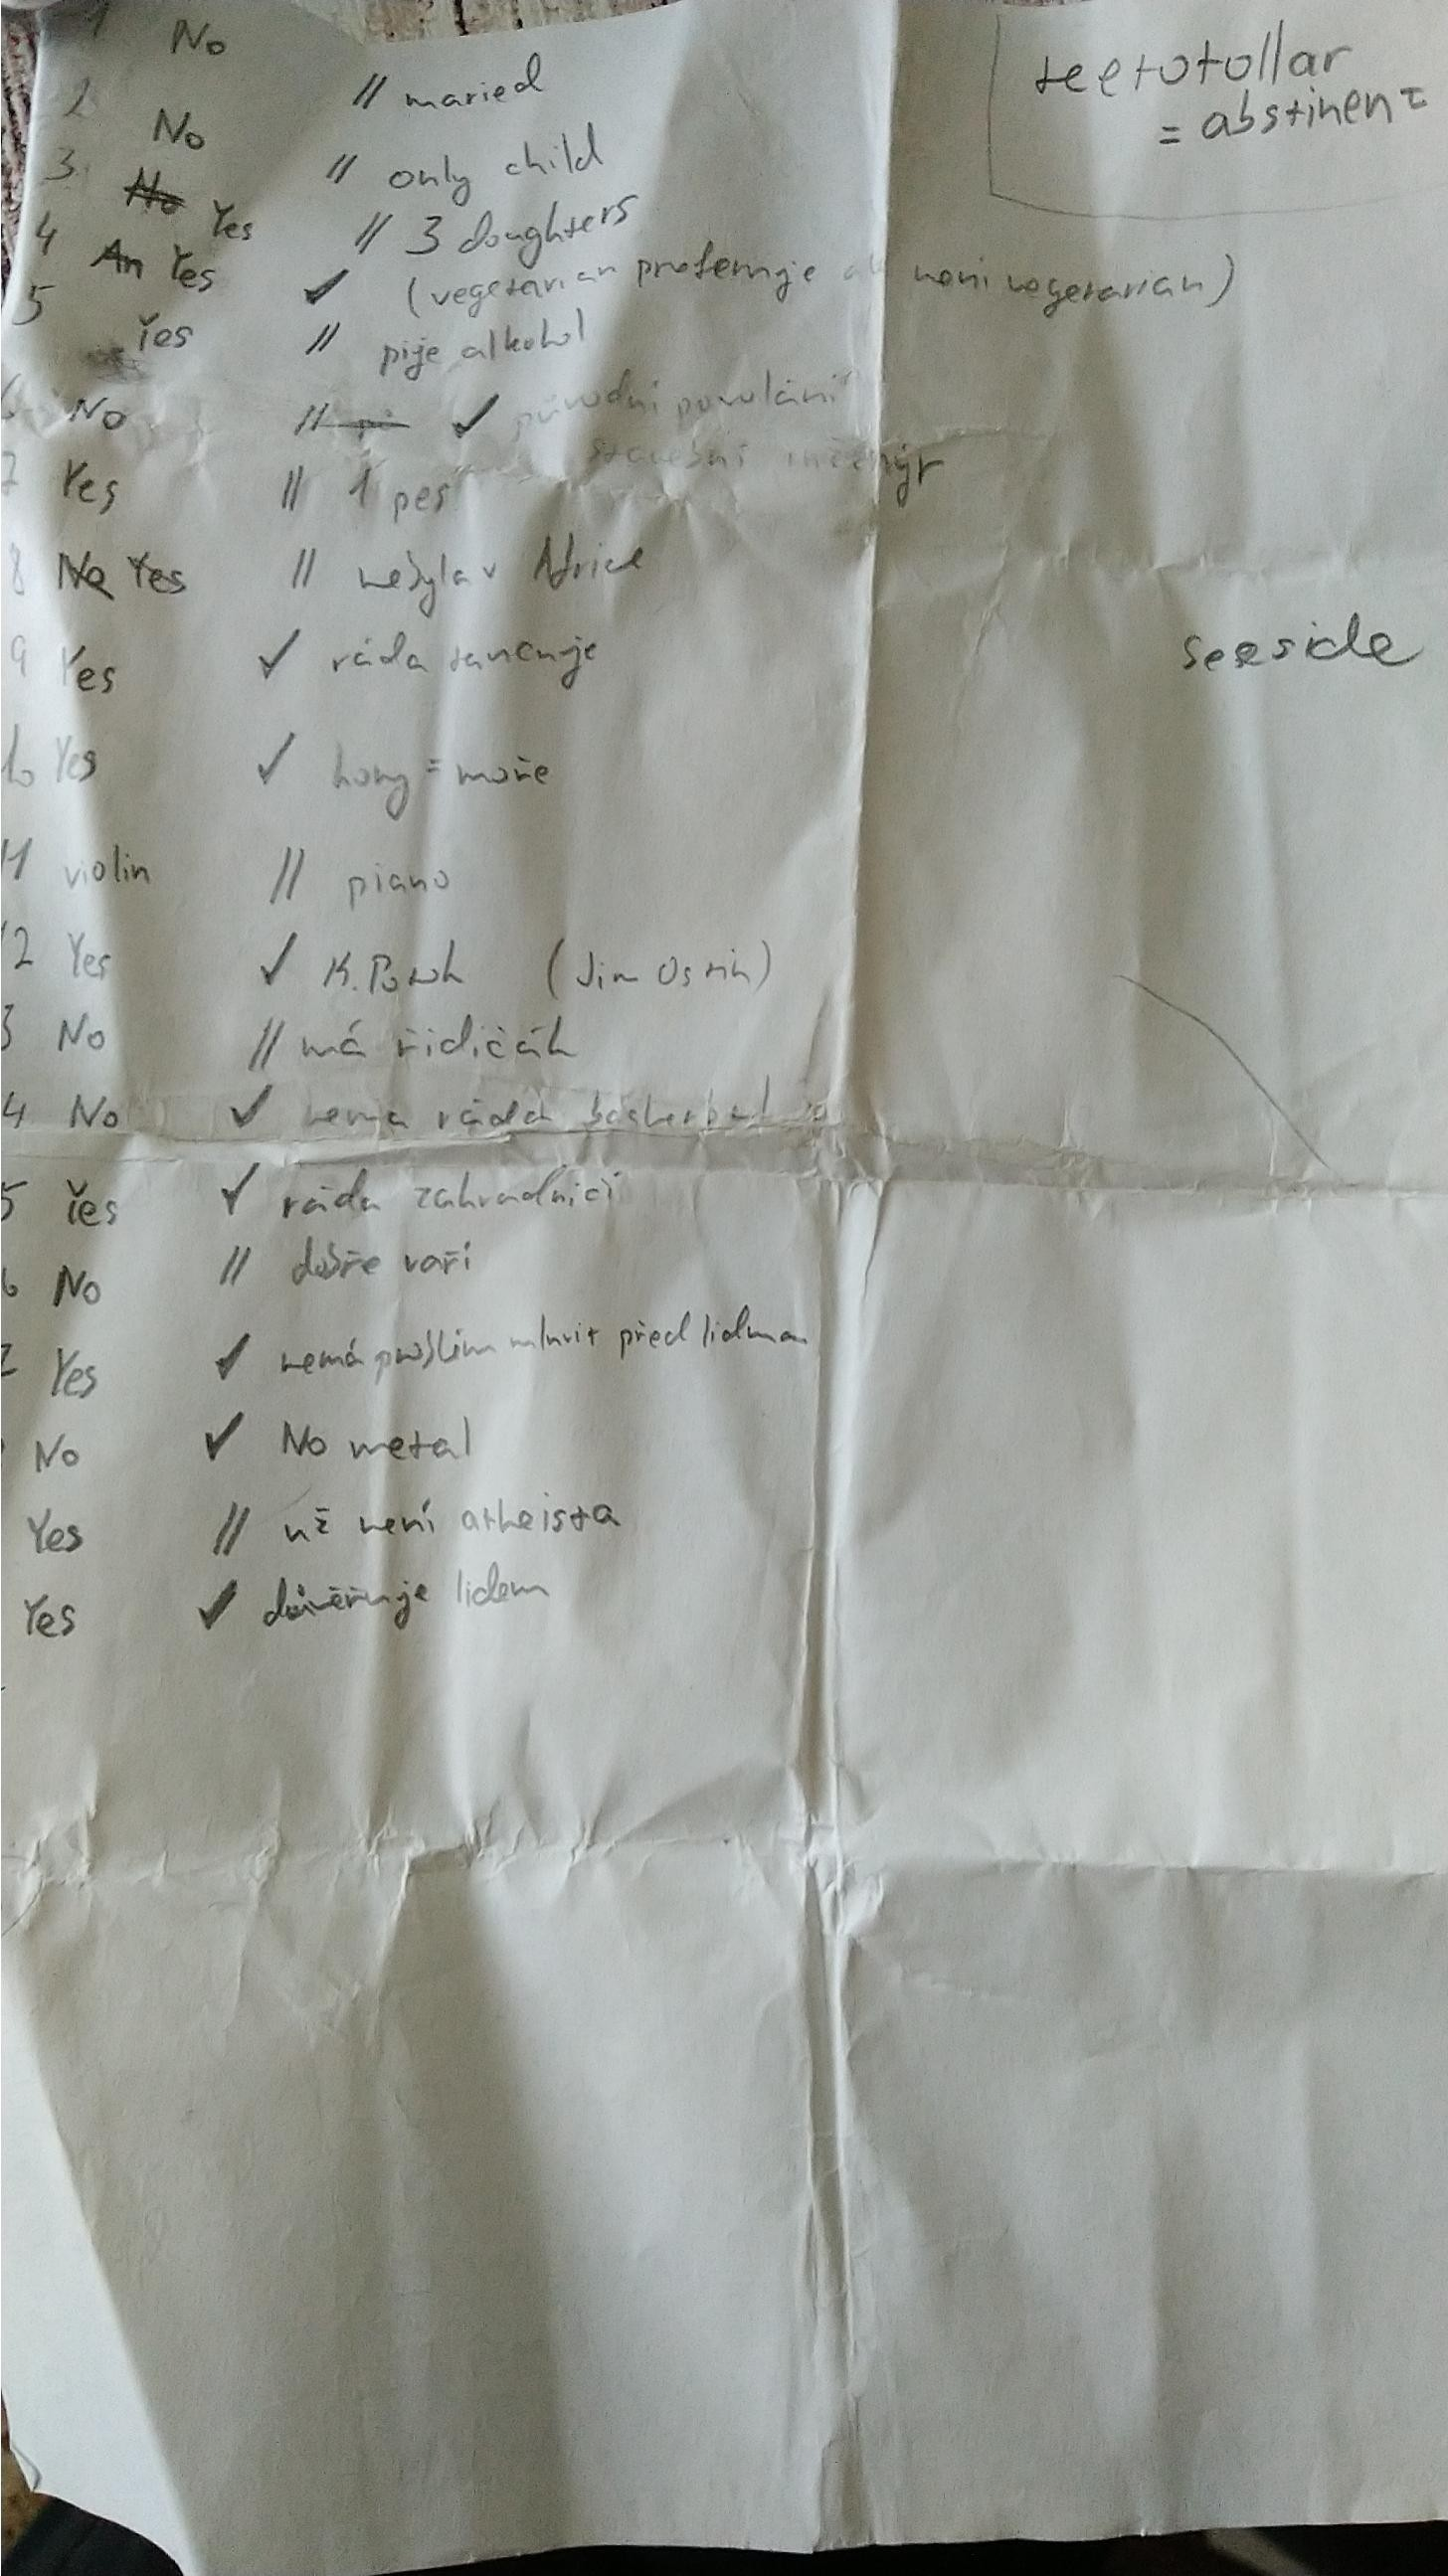 1 No // maried
2 No // only child
3 No Yes // 3 doughters
4 An Yes ✓ (vegetarian preferuje ale není vegetarian)
5 Yes // pije alkohol
6 No // ✓ původní povolání
stavební inženýr
7 Yes // 1 pes
8 No Yes // nebyla v Africe
9 Yes ✓ ráda tancuje
10 Yes ✓ hory = moře
11 violin // piano
12 Yes ✓ K. (Jim
3 No // má řidičák
4 No ✓ nemá ráda basketbal
5 Yes ✓ ráda zahradničí
6 No // dobře vaří
7 Yes ✓ nemá problém mluvit před lidma
No ✓ No metal
Yes // už není atheista
Yes ✓ důvěřuje lidem
teetotollar
= abstinent
seeside